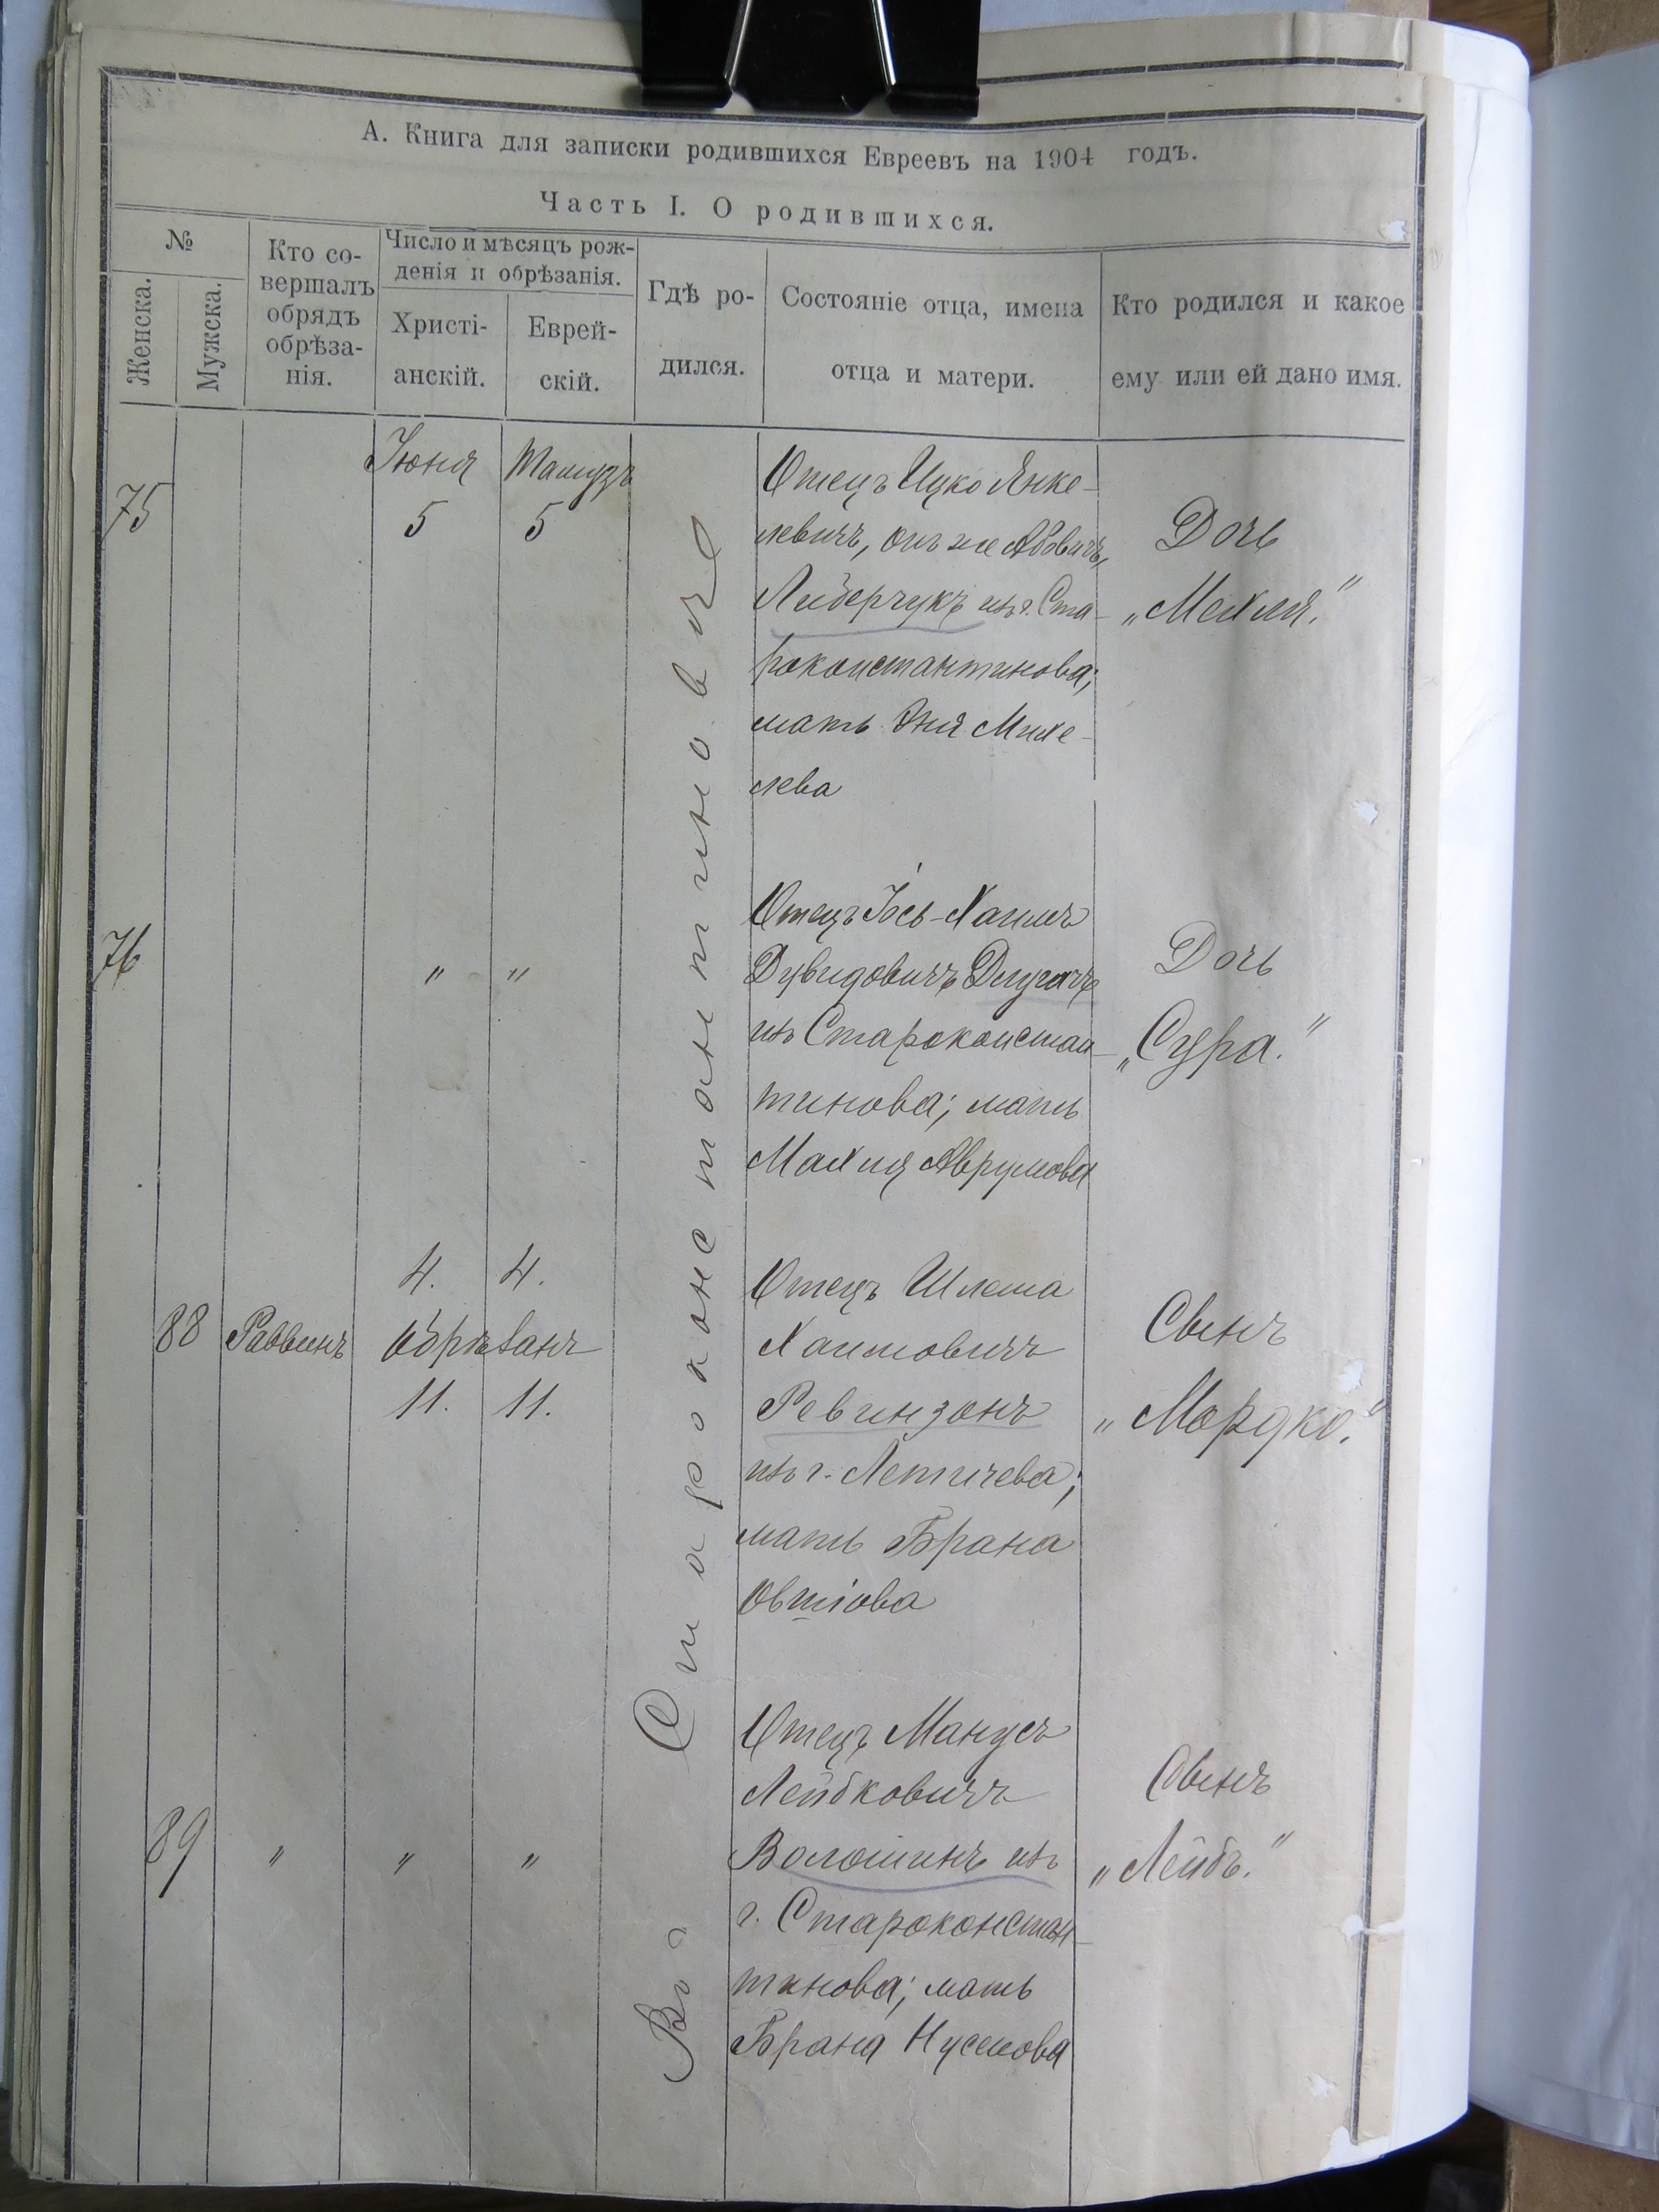 А. Книга для записки родившихся Евреевъ на 1904 годъ.
Часть I. О родившихся.
№
Женска.
Мужска.
Кто со-
вершалъ
обрядъ
обрѣза-
нія.
Число и мѣсяцъ рож-
денія и обрѣзанія.
Христі-
анскій.
Еврей-
скій.
Гдѣ ро-
дился.
Состояніе отца, имена
отца и матери.
Кто родился и какое
ему или ей дано имя.
Въ г. Староконстантиновѣ
75
Іюня
5
Тамузъ
5
Отецъ Ицко Янке-
левичъ, онъ же Абовичъ,
Лидерчукъ изъ г. Ста-
роконстантинова;
мать Эня Михе-
лева
Дочь
„Мехля."
76
" "
Отецъ Іось-Хаимъ
Дувидовичъ Длугачъ
изъ Староконстан-
тинова; мать
Махля Аврумова
Дочь
„Сура."
88
Раввинъ
4. 4.
Обрѣзанъ
11. 11.
Отецъ Шлема
Хаимовичъ
Ревинзонъ
изъ г. Летичева;
мать Брана
Овшіова
Сынъ
„Мордко."
89
" " "
Отецъ Манусъ
Лейбковичъ
Волошинъ изъ
г. Староконстан-
тинова; мать
Брана Нусенова
Сынъ
„Лейбъ."